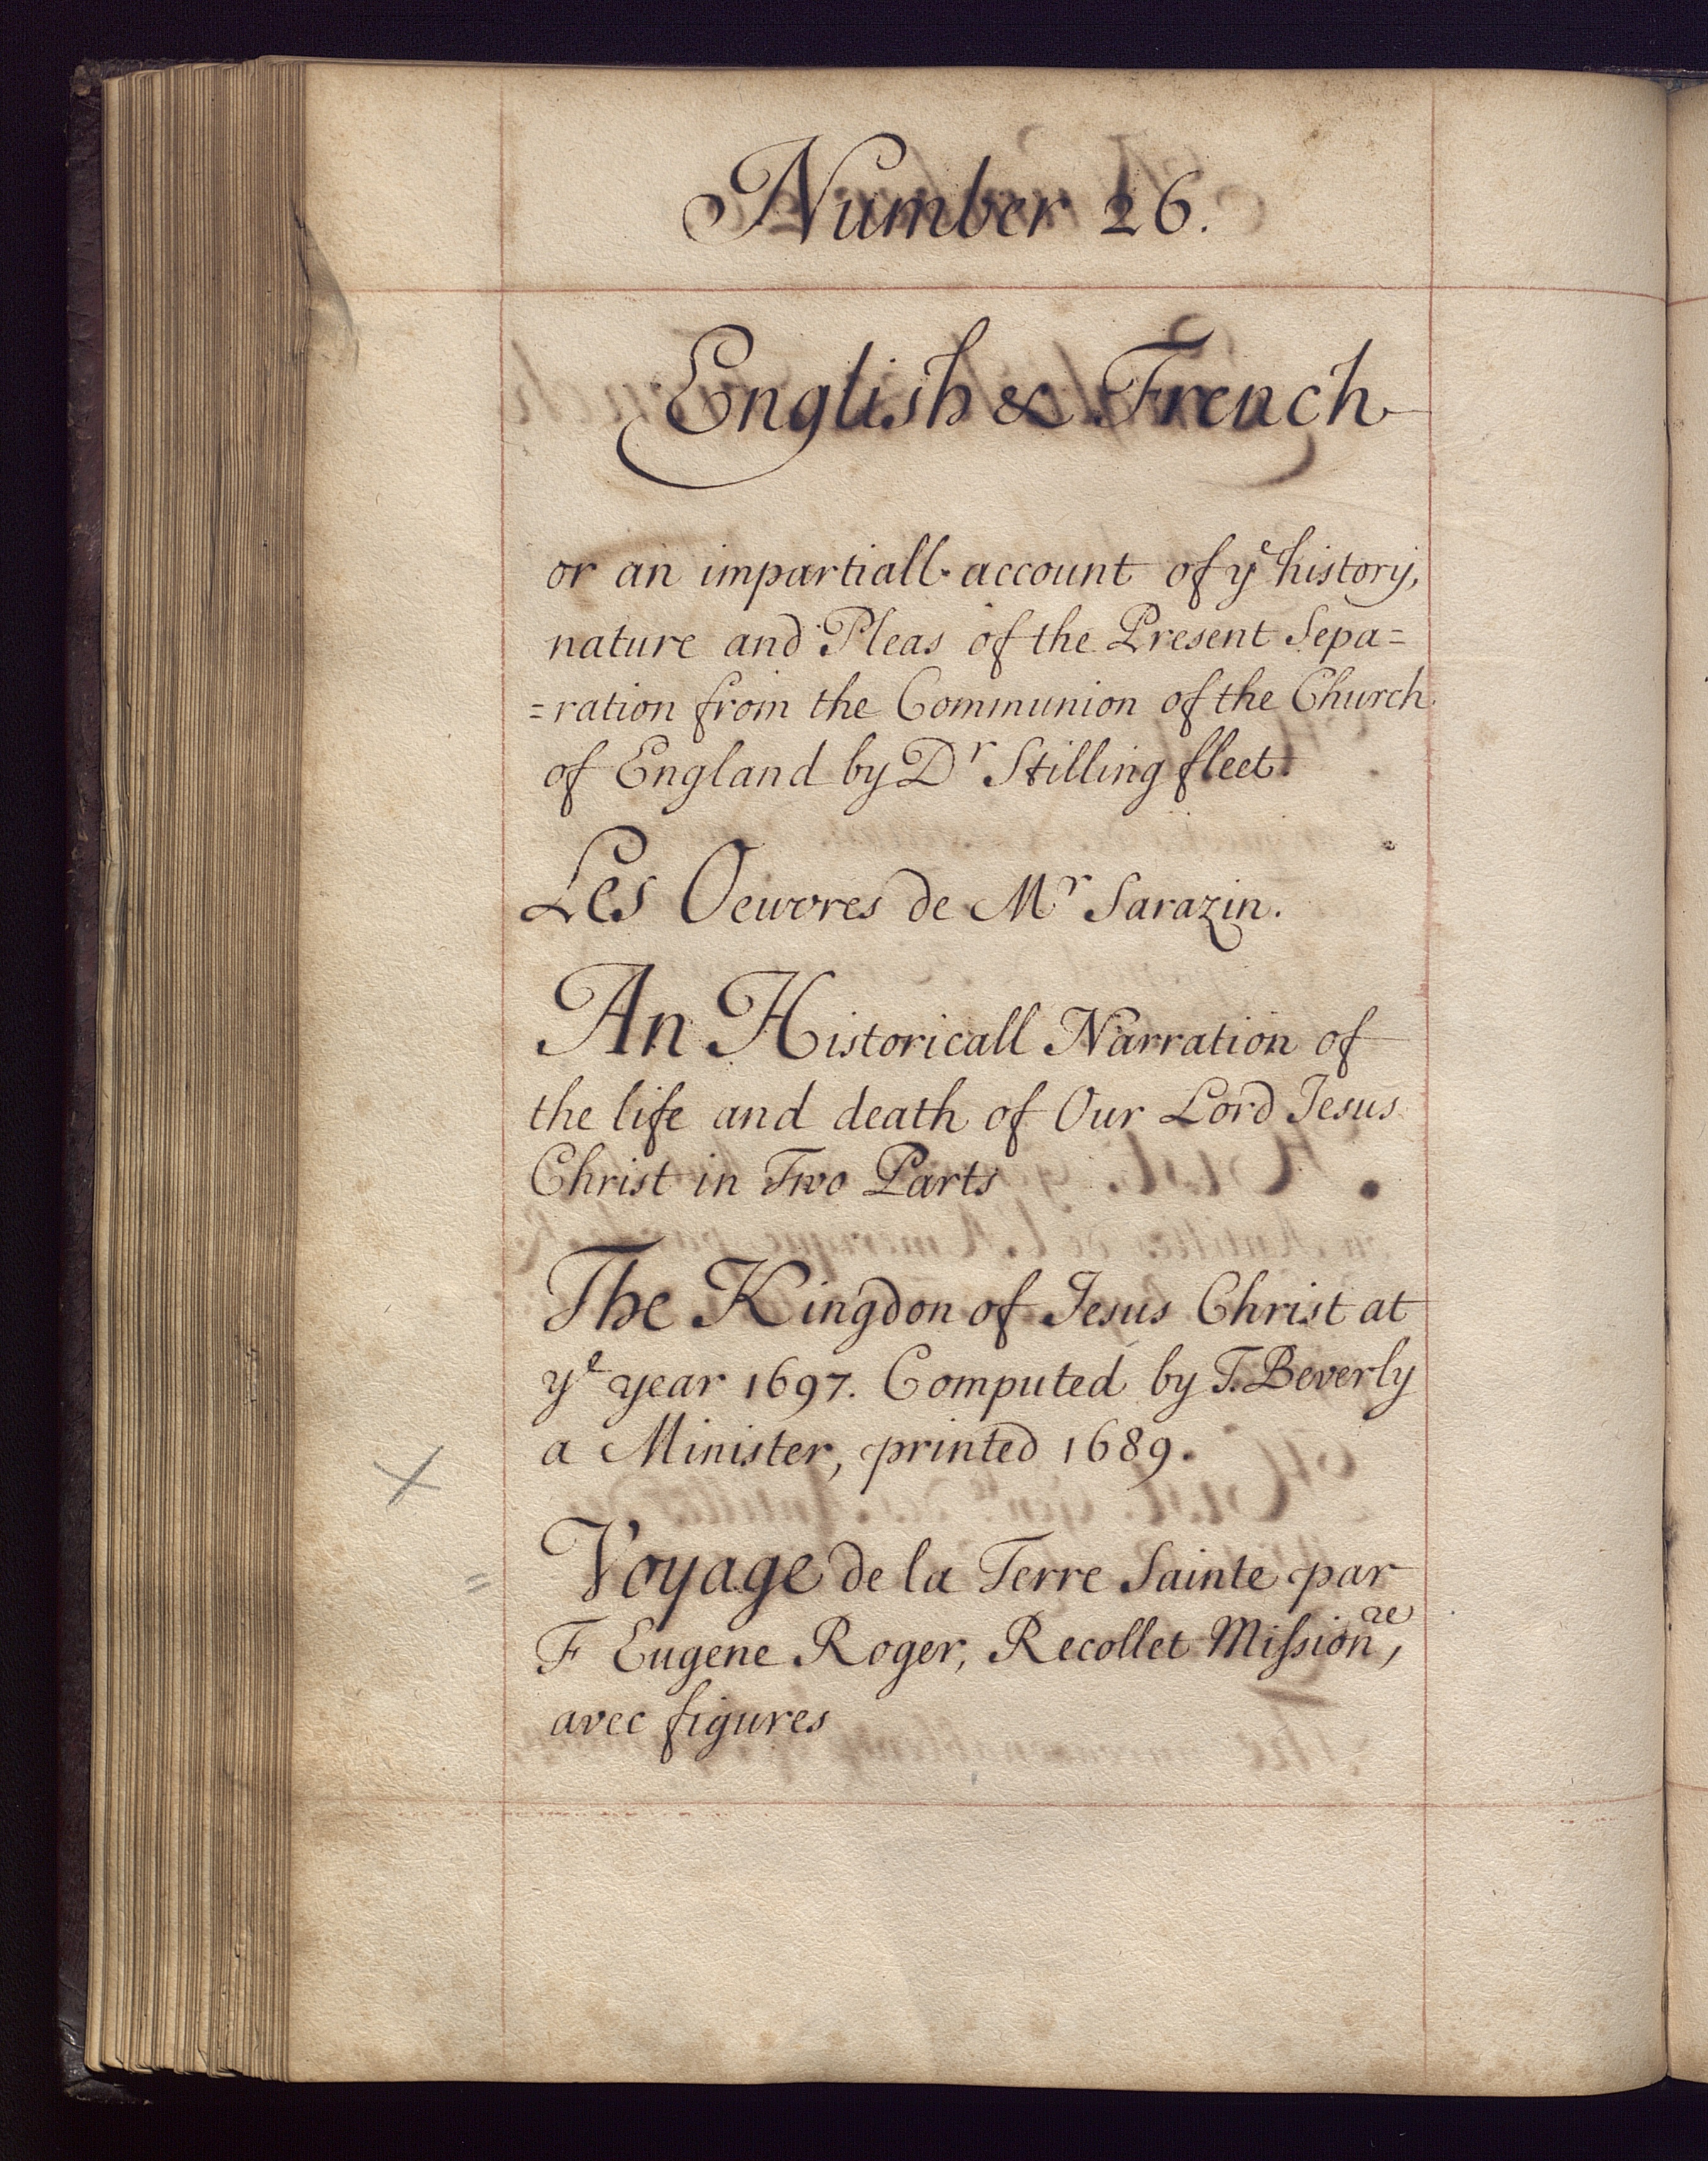 Number 26.
English & French
or an impartiall account of yᵉ history,
nature and Pleas of the Present Sepa=
=ration from the Communion of the Church
of England by Dʳ Stilling fleet.
Les Oeuvres de Mʳ Sarazin.
An Historicall Narration of
the life and death of Our Lord Jesus
Christ in Two Parts
The Kingdon of Jesus Christ at
yᵉ year 1697. Computed by T. Beverly
a Minister, printed 1689.
Voyage de la Terre Sainte par
F Eugene Roger, Recollet Miſsionʳᵉ,
avec figures